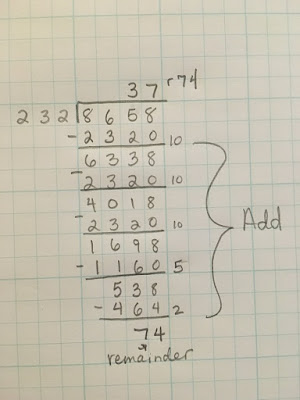 37 r74
232 8658
- 2320 10
6338
- 2320 10
4018
- 2320 10
1698
- 1160 5
538
- 464 2
74
remainder
Add